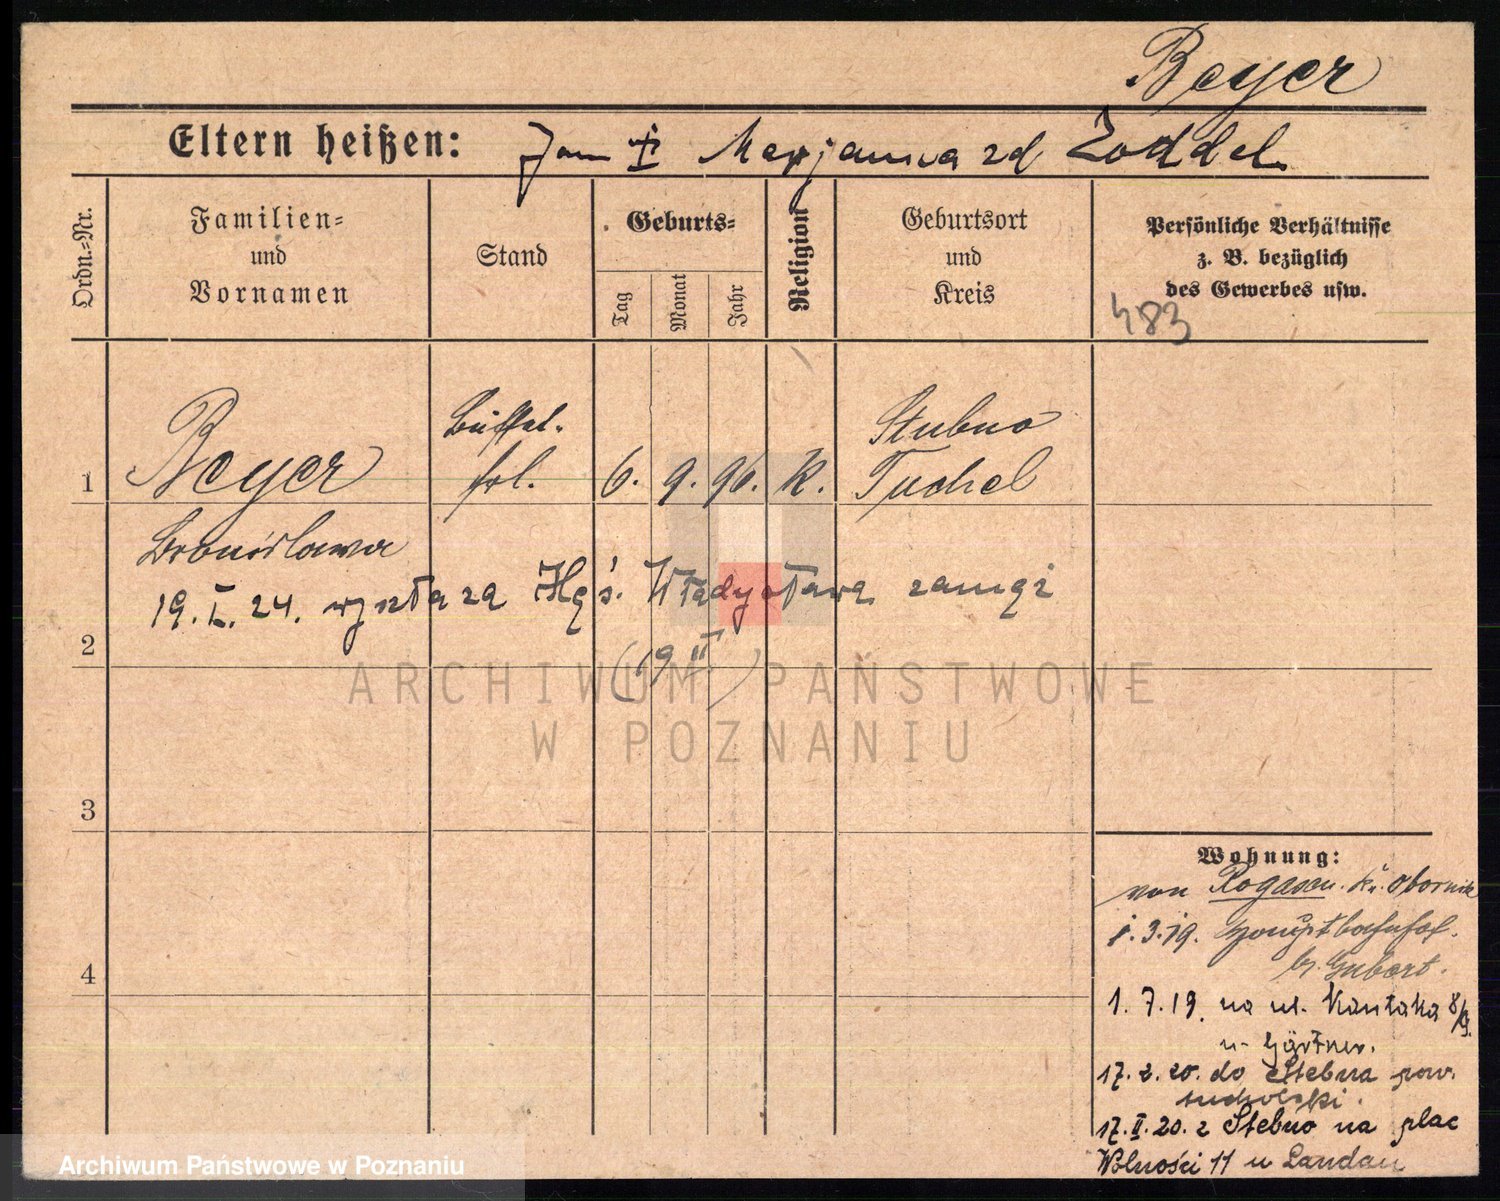 Beyer
Eltern heißen: Jan † Marjanna zd Zoddel
Ordn.=Nr.
Familien=
und
Vornamen
Stand
Geburts=
Tag
Monat
Jahr
Religion
Geburtsort
und
Kreis
Persönliche Verhältnisse
z. B. bezüglich
des Gewerbes usw.
483
1
Beyer
Büffet-
frl.
6. 9. 96. K.
Stubno
Tuchel
Bronislawa
19.I.24. wyszła za Władysława zamąż
2
(19 II)
ARCHIWUM PAŃSTWOWE
W POZNANIU
3
4
Wohnung:
von Rogasen. Kr. Obornik
1.3.19. Hauptbahnhof.
b. Hubert.
1.7.19. na ul. Kantaka 8/9.
u Gärtner.
17.2.20. do Stebna pow.
tucholski.
17.II.20. z Stebno na plac
Wolności 11 u Landau
Archiwum Państwowe w Poznaniu